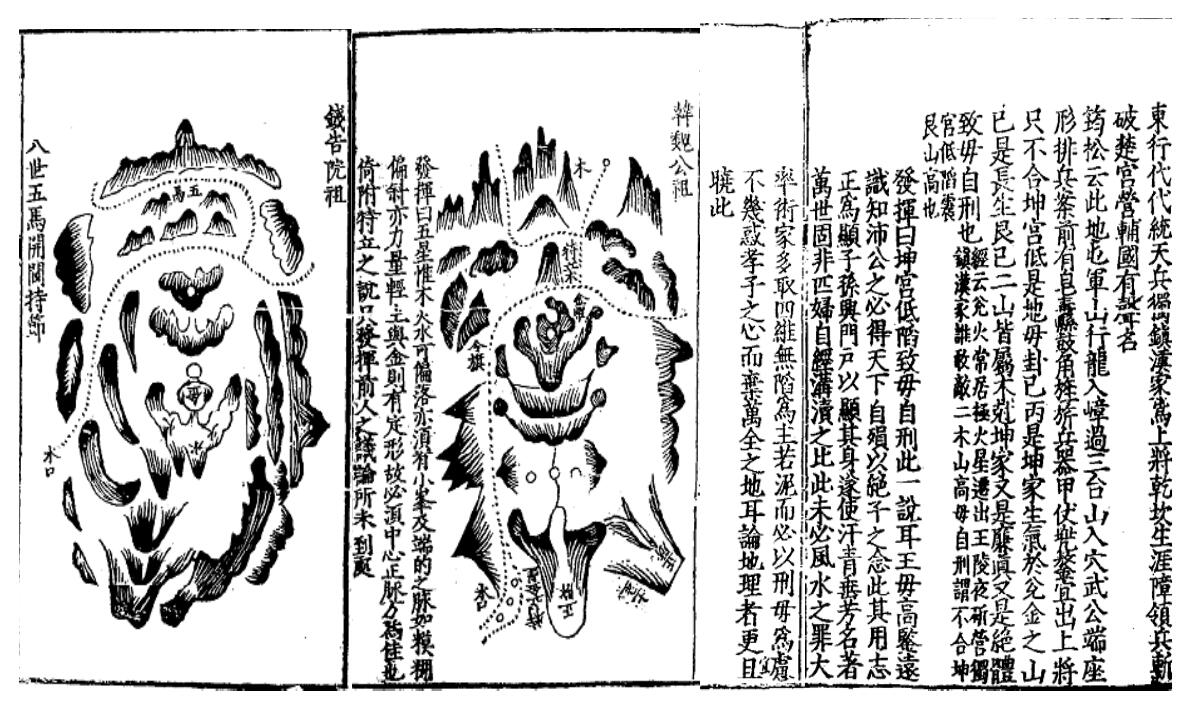 東行代代統天兵獨鎮漢家為上將乾坎生涯障領兵斬
破楚宮營輔國有聲名
筠松云此地屯軍山行龍入嶂過三台山入穴武公端座
形排兵案前有自
只不合坤宮低是地母卦已丙是坤家生氣於兌金之山
已是長生艮已二山皆屬木剋坤家又是廉真又是絕體
致母自刑也
經云兌火常居極火星遷出王陵夜斫營獨
鎮漢家誰敢敵二木山高母自刑謂不合坤
宮低陷震
艮山高也
發揮曰坤宮低陷致母自刑此一說耳王母高鑒遠
識知沛公之必得天下自殞以絕子之念此其用志
正為顯子孫興門戶以顯其身遂使汗青垂芳名著
萬世固非匹婦自經溝瀆之比此未必風水之罪大
率術家多取四維無陷為主若泥而必以刑母為慮
不幾惑孝子之心而棄萬全之地耳論地理者更宜
曉此
韓魏公祖
木
特案
金旗
水口
正
發揮曰五星惟木火水可偏落亦須有小峯及端的之脉如模糊
偏斜亦力量輕土與金則有定形故必頂中心正脉為佳也
倚附特立之說只發揮前人之議論所未到處
錢告院祖
五馬
水口
八世五馬開閫持節